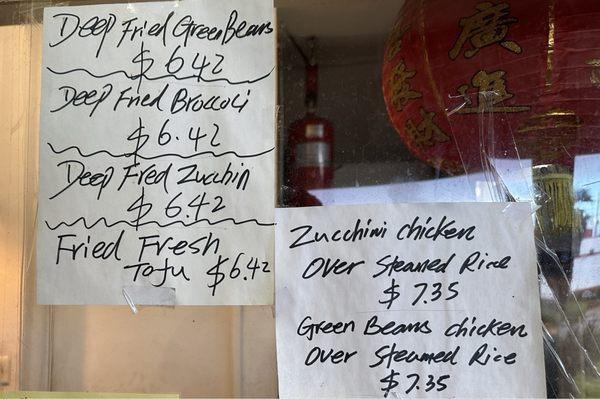 Deep Fried Green Beans
$6.42
Deep Fried Broccoli
$6.42
Deep Fried Zucchin
$6.42
Fried Fresh
Tofu $6.42
Zucchini chicken
Over Steamed Rice
$7.35
Green Beans chicken
Over Steamed Rice
$7.35
廣進